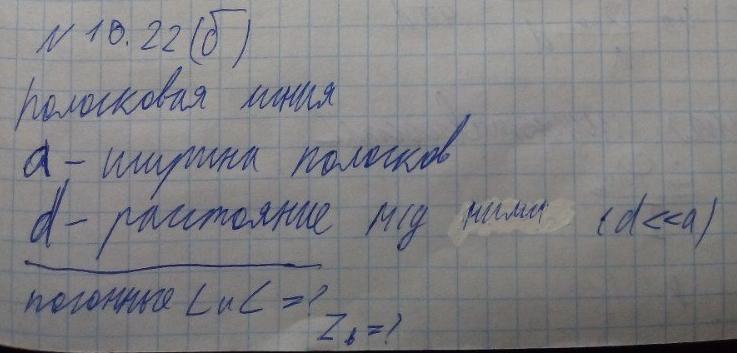 N 10.22 (б)
полосковая линия
a - ширина полосков
d - расстояние м/д ними (d<<a)
погонные L и C = ?
Zв = ?